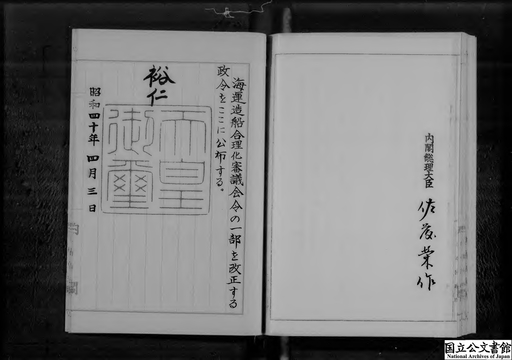 海運造船合理化審議会令の一部を改正する
政令をここに公布する。
裕仁
天皇
御璽
昭和四十年四月三日
内閣総理大臣
佐藤栄作
国立公文書館
National Archives of Japan